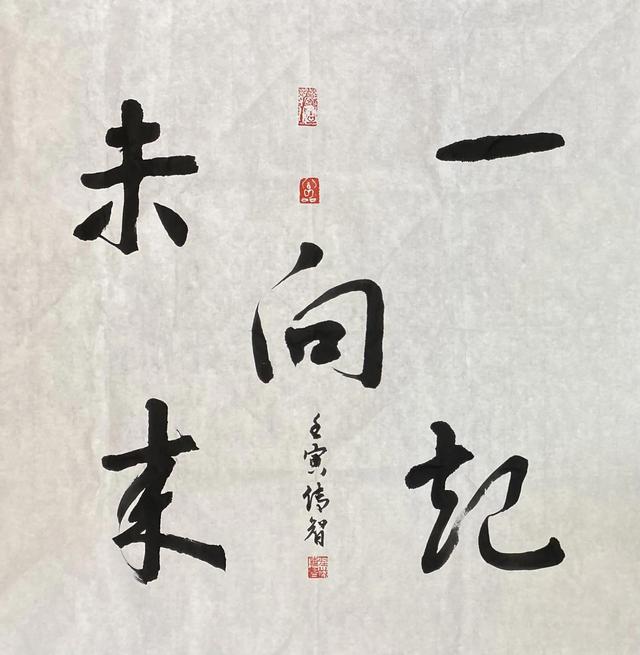 一起
向
未来
壬寅传智